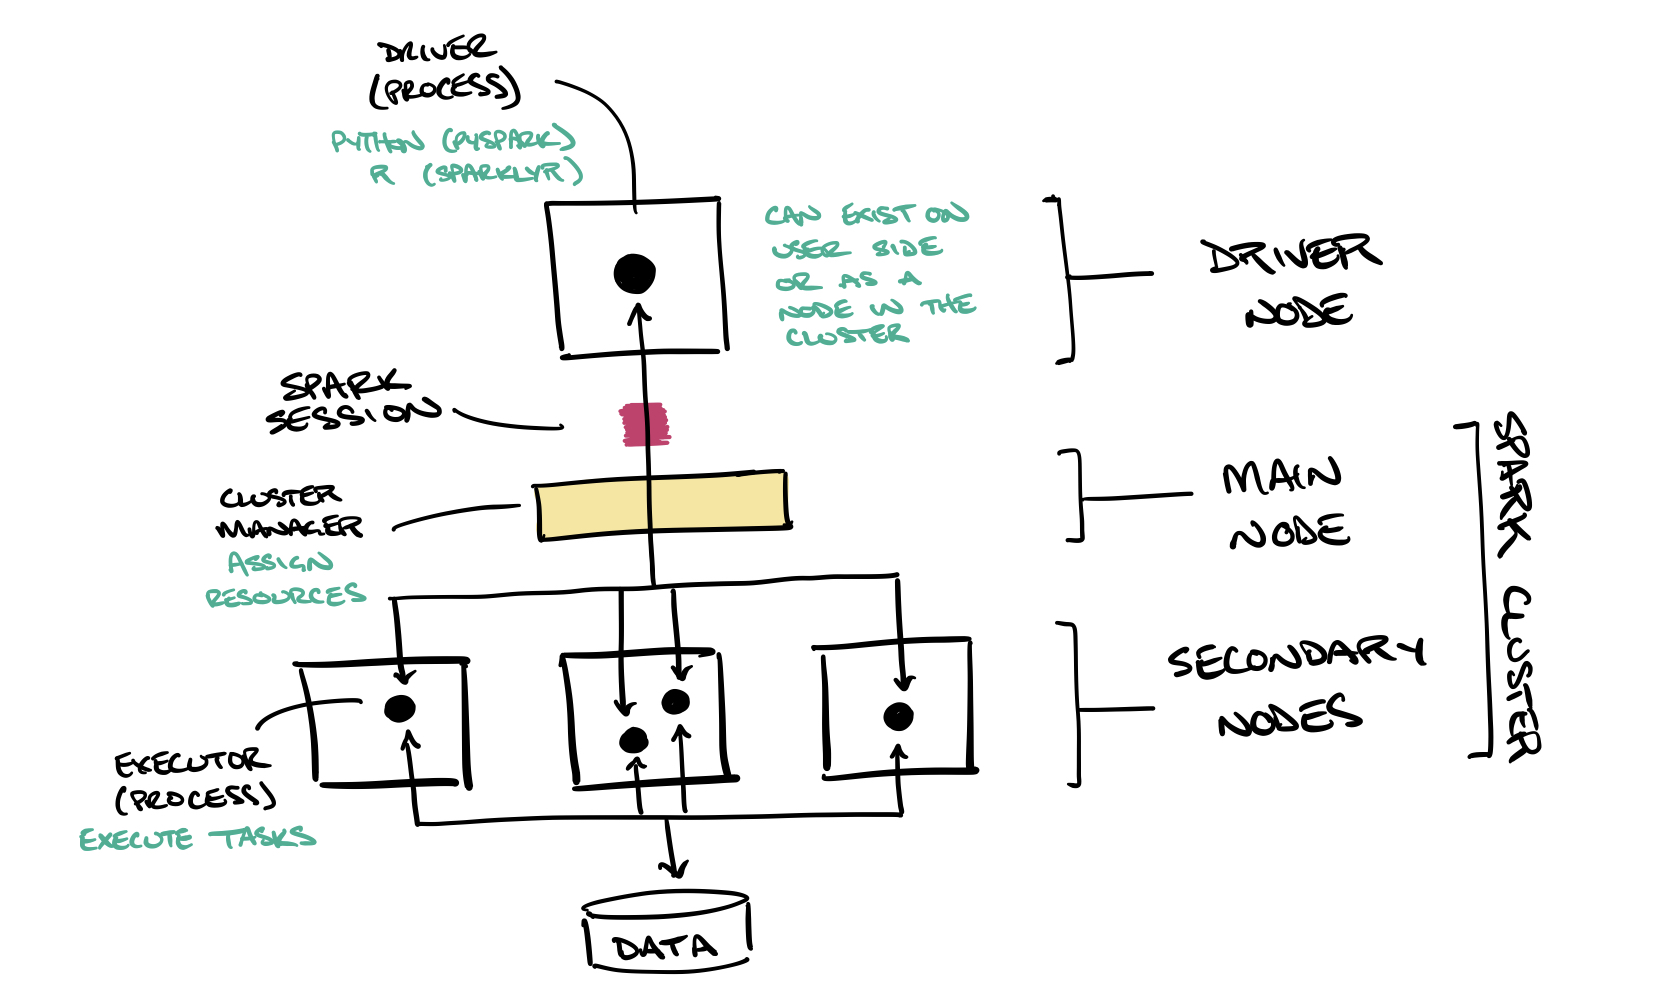 DRIVER
(PROCESS)
PYTHON (PYSPARK)
R (SPARKLYR)
CAN EXIST ON
USER SIDE
OR AS A
NODE IN THE
CLUSTER
DRIVER
NODE
SPARK
SESSION
CLUSTER
MANAGER
ASSIGN
RESOURCES
MAIN
NODE
SPARK CLUSTER
SECONDARY
NODES
EXECUTOR
(PROCESS)
EXECUTE TASKS
DATA